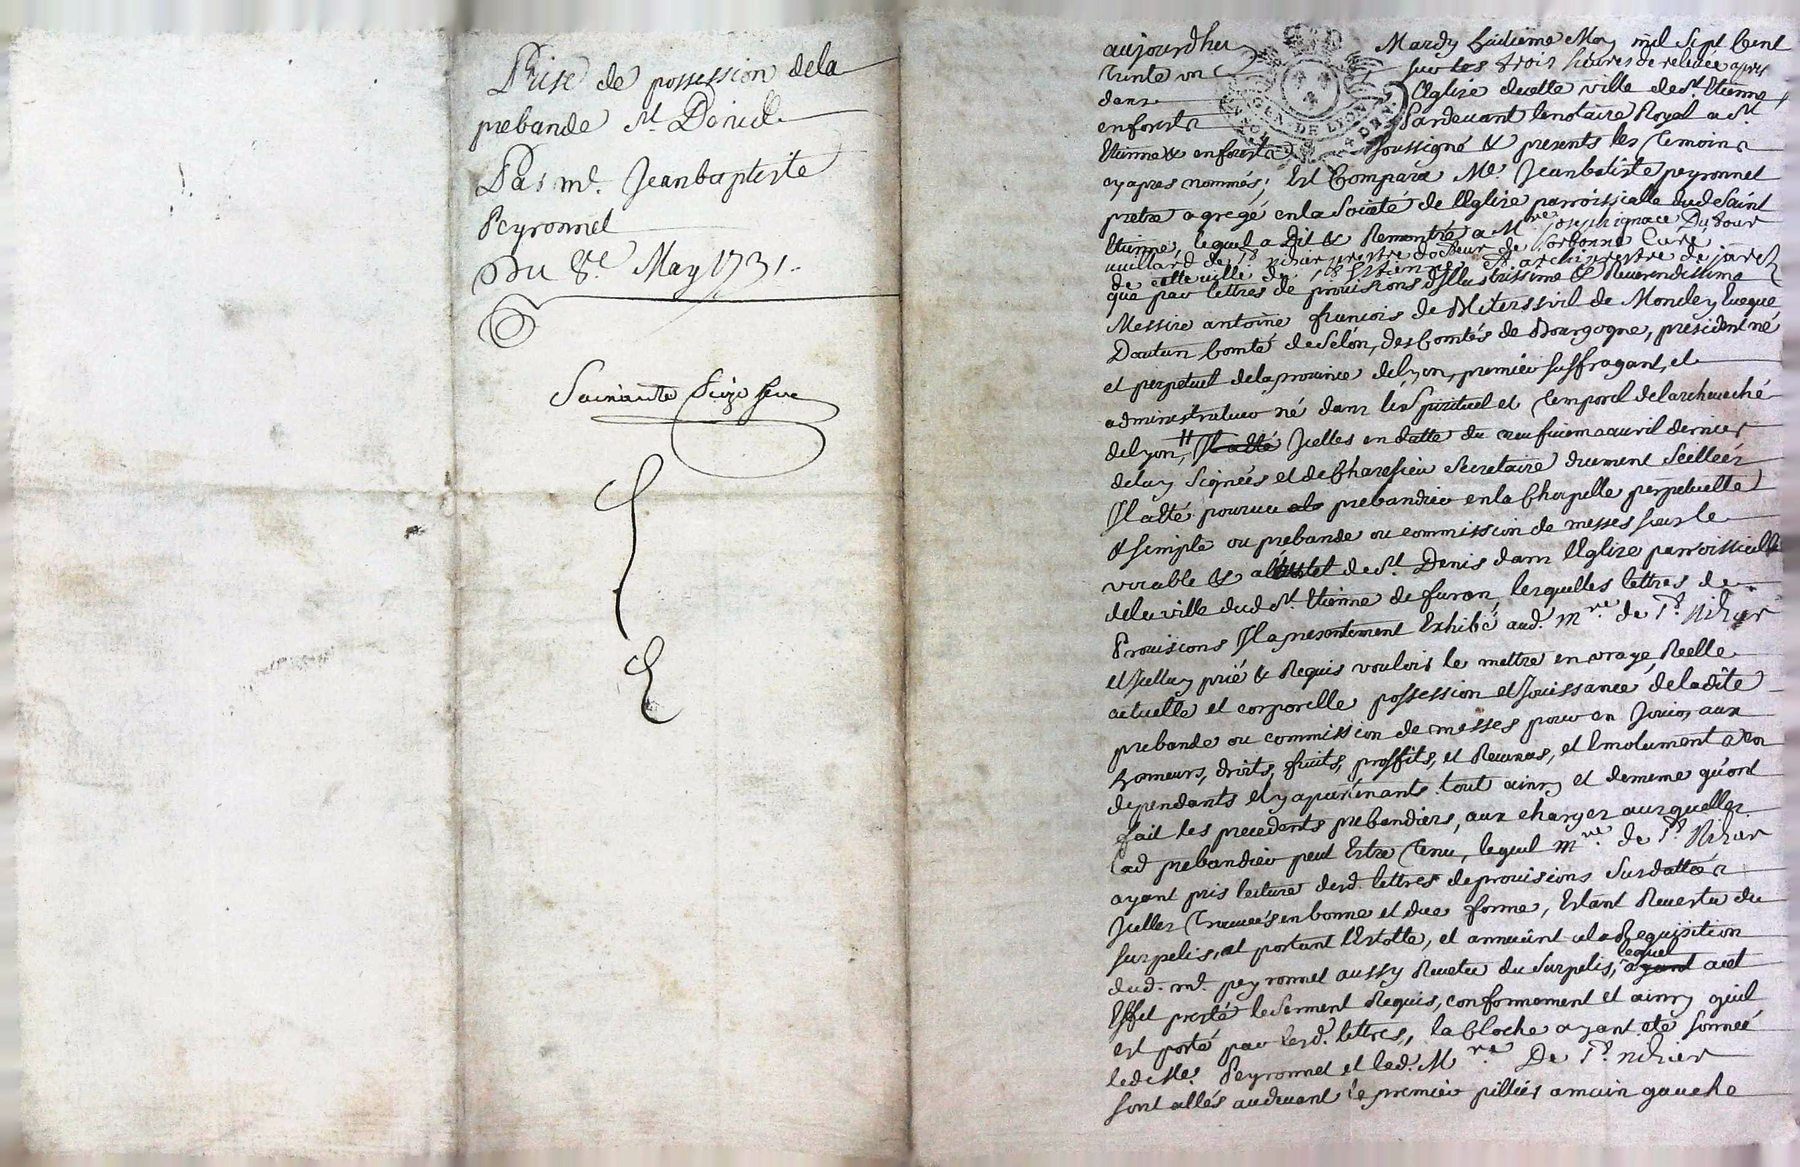 Prise de possession dela
prebande St. Denis
Par me. Jeanbaptiste
Peyronnet
Du 8e. May 1731.
Soixante Seize
aujourdhuy Mardy huitieme May mil Sept Cent
trente un sur les trois heures de relevée apres
dans l'Eglise decette ville de St. Etienne
enforests Pardevant lenotaire Royal a St.
Etienne & enforests soussigné & presents les temoins
cyapres nommés; Est Comparu Me. Jeanbatiste peyronnet
pretre agregé enla Société de l'Eglise parroissialle dud Saint
Etienne, lequel a Dit & Remontré a Mre. joseph ignace Dufour
de St. nizier prestre docteur de sorbonne Curé
de cette ville de St. Etienne & archiprestre de jarez
que par lettres de provisions d'Illustrissime & Reverendissime
Messire antoine françois de Bliterssvit de Moncley Eveque
Dautun Comte deSelon, des Comtés de Bourgogne, president né
et perpetuel delaprovince delyon, premier suffragant, et
administrateur né dans les Spirituel et temporel delarcheveché
delyon, Il a été Icelles en datte du neufiieme avril dernier
deluy Signées et de Secretaire duement Scellées
Il aété pourveu prebandier enla Chapelle perpetuelle
& simple ou prebande ou commission de messes sous le
vocable & autel de St. Denis dans l'Eglise parroissialle
dela ville dud St. Etienne de furan, lesquelles lettres de
Provisions Il a presentement Exhibé aud. mre. de St. Nizier
et Icelluy prié & Requis vouloir le mettre en vraye Reelle
actuelle et corporelle possession et Jouissance deladite
prebande ou commission de messes pour en Jouir, aux
honneurs, droits, fruits, proffits, et Revenus, et Emolument en
dependants et y apartenants tout ainsy et dememe qu'ont
fait les precedents prebandiers, aux charges auxquelles
Led prebandier peut Estre tenu, lequel mre. de St. Nizier
ayant pris lecture desd. lettres deprovisions Susdattées
Icelles trouvées en bonne et due forme, Estant Revestu du
surpelis, et portant l'Estolle, et annuant ala Requisition
dud. me. peyronnet aussy Revetu du Surpelis, lequel ayant acet
Effet presté leserment Requis, conformement et ainsy quil
est porté par lesd. lettres, la Cloche ayant été sonnée
led Me. Peyronnet et led. Mre. De St. nizier
sont allés audevant le premier pillier amain gauche